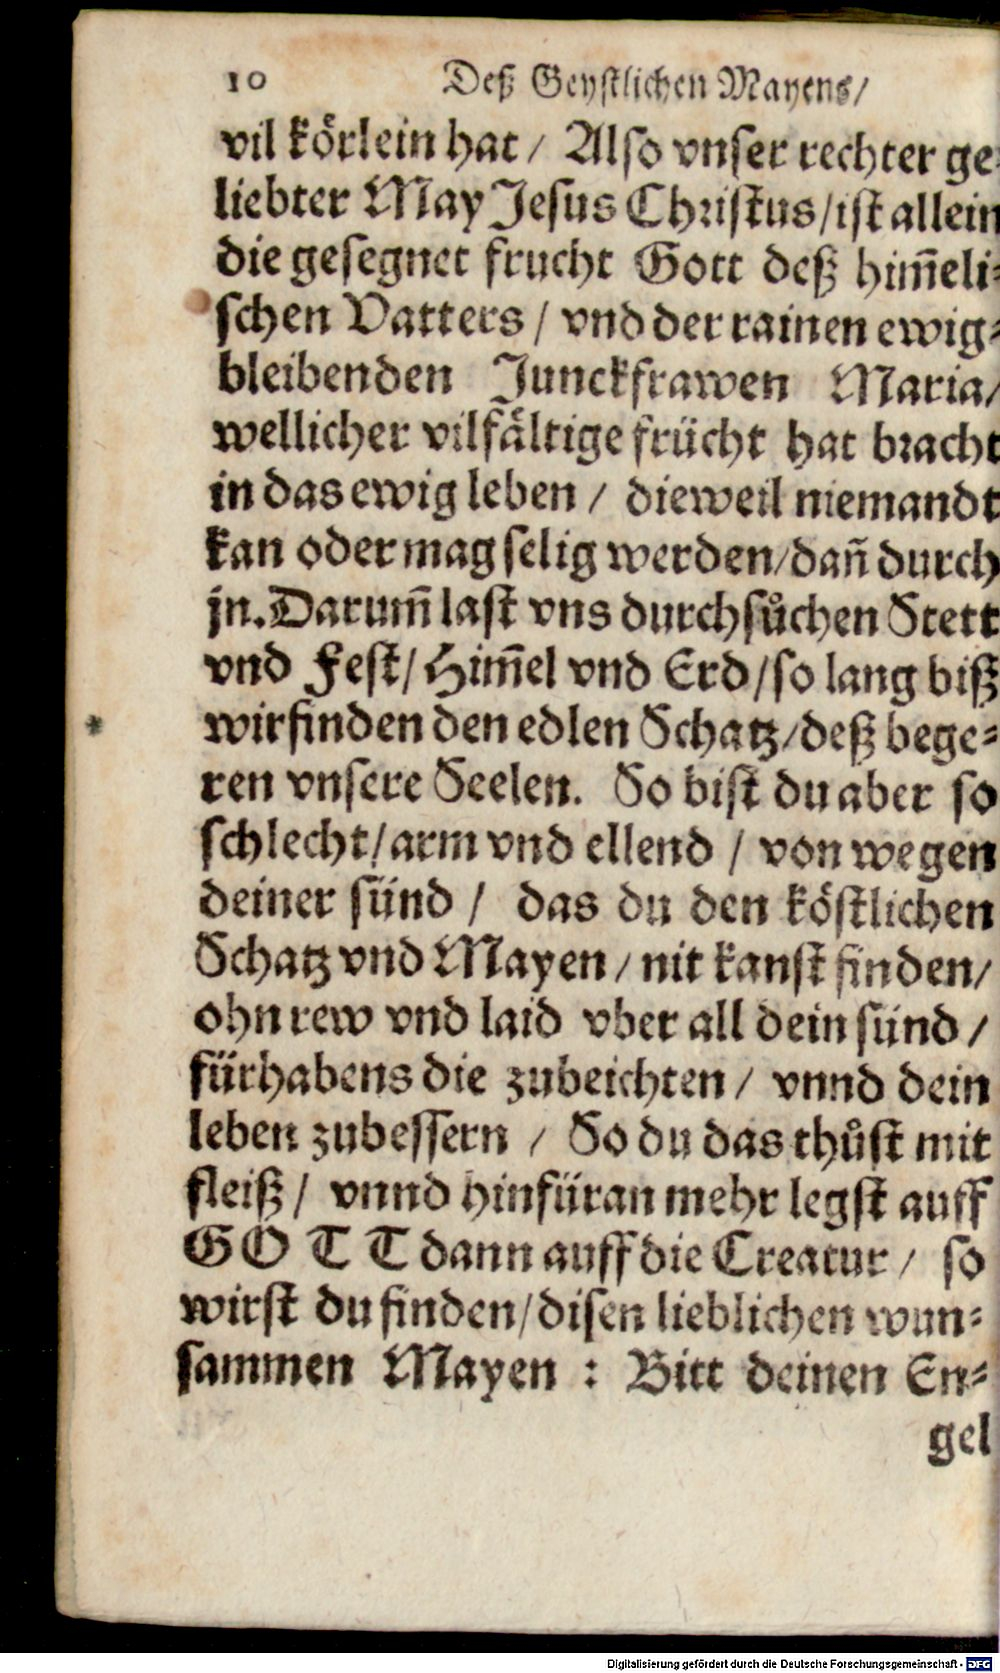 10 Deß Geystlichen Mayens/
vil körlein hat / Also vnser rechter ge-
liebter May Jesus Christus/ist allein
die gesegnet frucht Gott deß him̃eli-
schen Vatters / vnd der rainen ewig-
bleibenden Junckfrawen Maria/
wellicher vilfältige frücht hat bracht
in das ewig leben / dieweil niemandt
kan oder mag selig werden/dañ durch
jn. Darum̃ last vns durchsůchen Stett
vnd Fest/ Him̃el vnd Erd/so lang biß
wir finden den edlen Schatz/deß bege-
ren vnsere Seelen. So bist du aber so
schlecht/arm vnd ellend / von wegen
deiner sünd / das du den köstlichen
Schatz vnd Mayen / nit kanst finden/
ohn rew vnd laid vber all dein sünd /
fürhabens die zubeichten / vnnd dein
leben zubessern / So du das thůst mit
fleiß / vnnd hinfüran mehr legst auff
GOTT dann auff die Creatur / so
wirst du finden/disen lieblichen wun-
sammen Mayen : Bitt deinen En-
gel
Digitalisierung gefördert durch die Deutsche Forschungsgemeinschaft - DFG